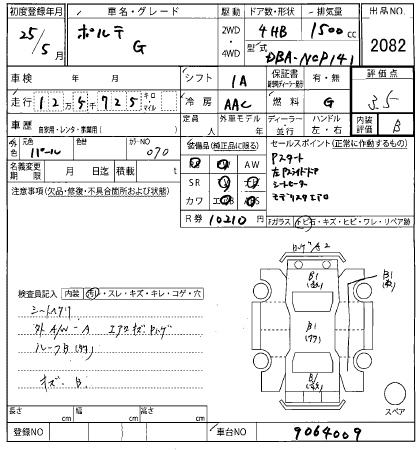 初度登録年月 車名・グレード 駆動 ドア数・形状 排気量 出品NO.
25/5月 ポルテ G 2WD ・ 4WD 4HB 1500cc 2082
型式 DBA-NCP141
車検 年 月 シフト IA 保証書 有・無 評価点
走行 12万5千725 キロ・マイル 冷房 AAC 燃料 G 3.5
車歴 自家用・レンタ・事業用( ) 定員 人 外車モデル 年 ディーラー・並行 ハンドル 左・右 内装評価 B
外色 元色 パール 色替 カラーNO 070 装備品(純正品に限る) セールスポイント(正常に作動するもの)
名義変更期限 月 日迄 積載 t SR AW
注意事項(欠品・修復・不具合箇所および状態) カワ
R券 10210円
Pスタート
シートヒーター
モデリスタエアロ
Fガラス トビ石・キズ・ヒビ・ワレ・リペア跡
検査員記入 内装 汚れ・スレ・キズ・キレ・コゲ・穴
シートスリ
外 A/W-A
ルーフB
キズ・B
スペア
長さ cm 幅 cm 高さ cm
登録NO 車台NO 9064009